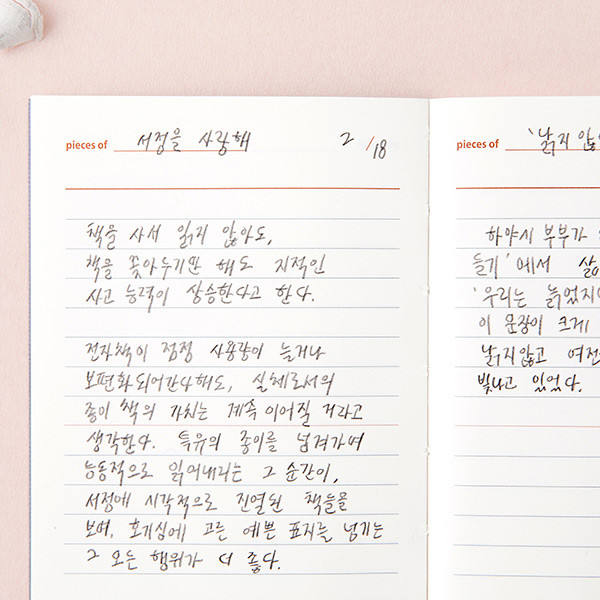 pieces of 서점을 사랑해 2/18
책을 사서 읽지 않아도,
책을 꽂아두기만 해도 지적인
사고 능력이 상승한다고 한다.
전자책이 점점 사용량이 늘거나
보편화되어간다해도, 실체로서의
종이 책의 가치는 계속 이어질 거라고
생각한다. 특유의 종이를 넘겨가며
능동적으로 읽어내리는 그 순간이,
서점에 시각적으로 진열된 책들을
보며, 호기심에 고른 예쁜 표지를 넘기는
그 모든 행위가 더 좋다.
pieces of '낡지 않
하야시 부부가
들기'에서
'우리는 늙었지
이 문장이 크게
낡지않고 여전
빛나고 있었다.